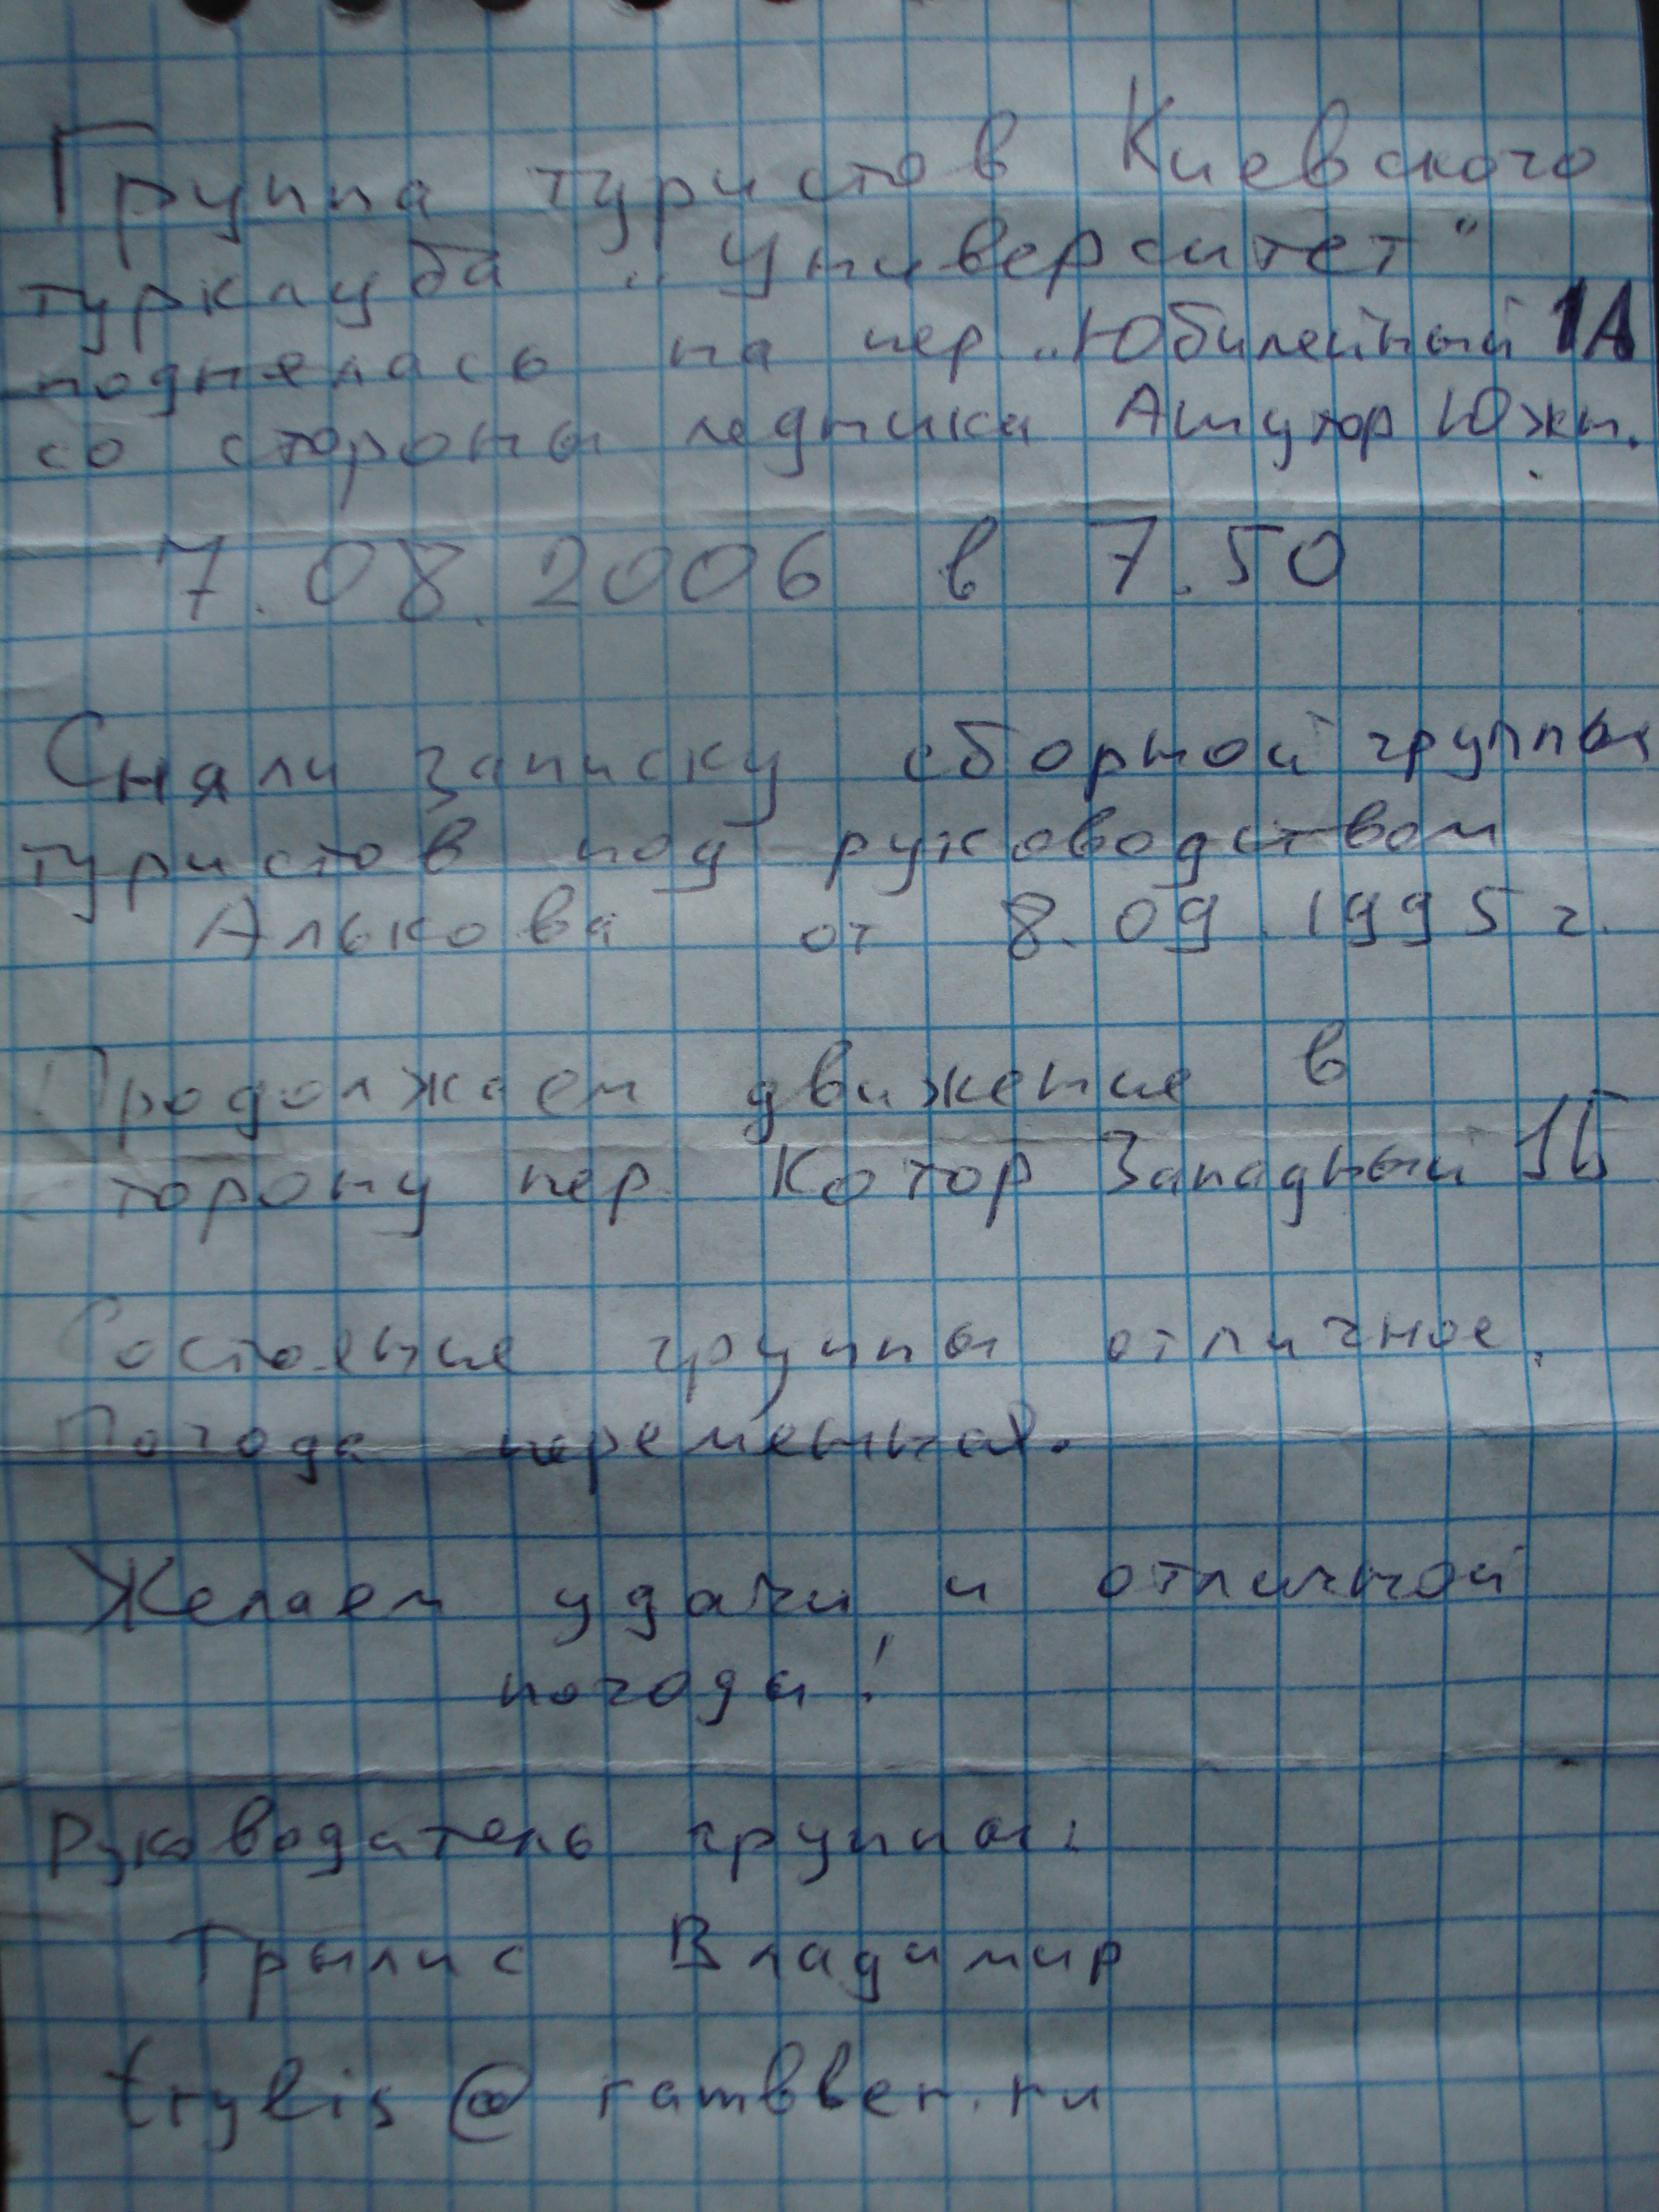 Группа туристов Киевского
турклуба „Университет"
поднялась на пер „Юбилейный 1А
со стороны ледника Ашутор Южн.
7.08.2006 в 7.50
Сняли записку сборной группы
туристов под руководством
Алькова от 8.09.1995 г.
Продолжаем движение в
сторону пер Котор Западный 1Б
Состояние группы отличное.
Погода переменная.
Желаем удачи и отличной
погоды!
Руководатель группы:
Трылис Владимир
trylis@rambber.ru